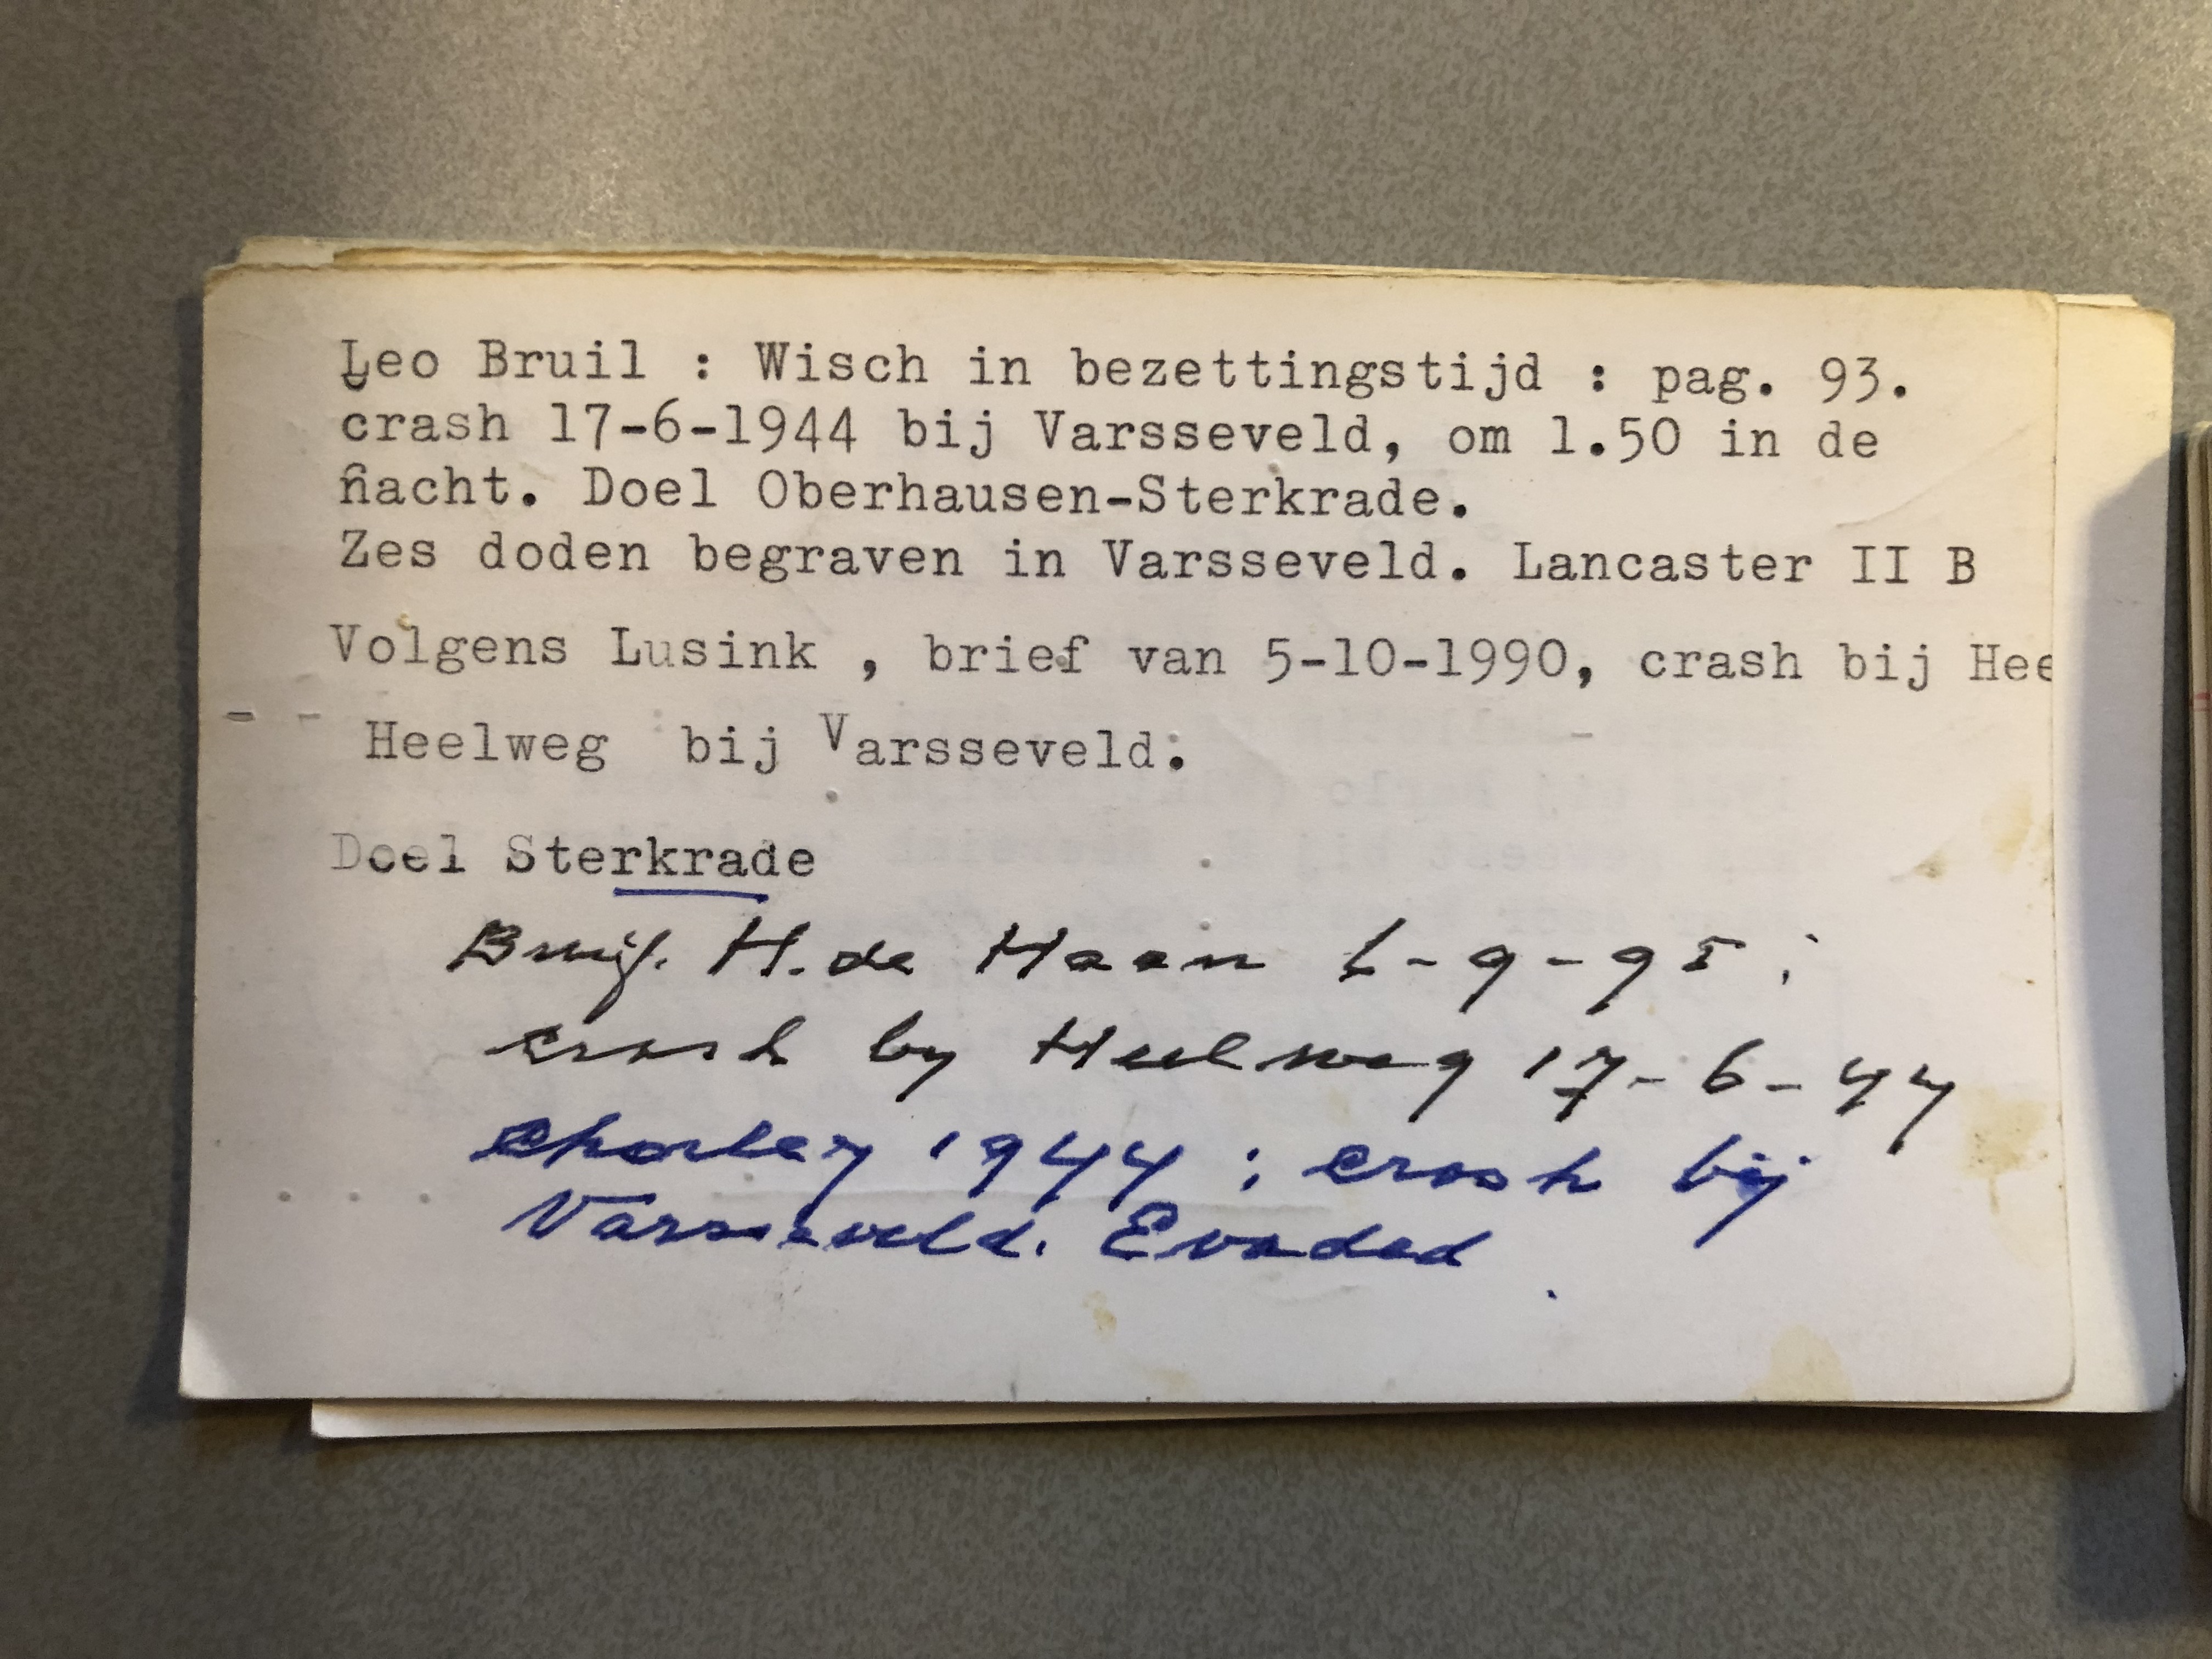 Leo Bruil : Wisch in bezettingstijd : pag. 93.
crash 17-6-1944 bij Varsseveld, om 1.50 in de
nacht. Doel Oberhausen-Sterkrade.
Zes doden begraven in Varsseveld. Lancaster II B
Volgens Lusink , brief van 5-10-1990, crash bij Hee
Heelweg bij Varsseveld.
Doel Sterkrade
H. de Haan -9-95 :
crash by Heelweg 17-6-44
Chorley 1944 : crash bij
Varsseveld. Evaded